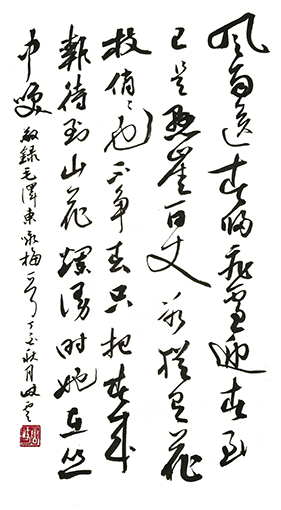 风雨送春归飛雪迎春到
已是悬崖百丈冰犹有花
枝俏〻也不争春只把春来
報待到山花爛漫时她在丛
中笑 敬録毛澤東咏梅一首丁亥秋月